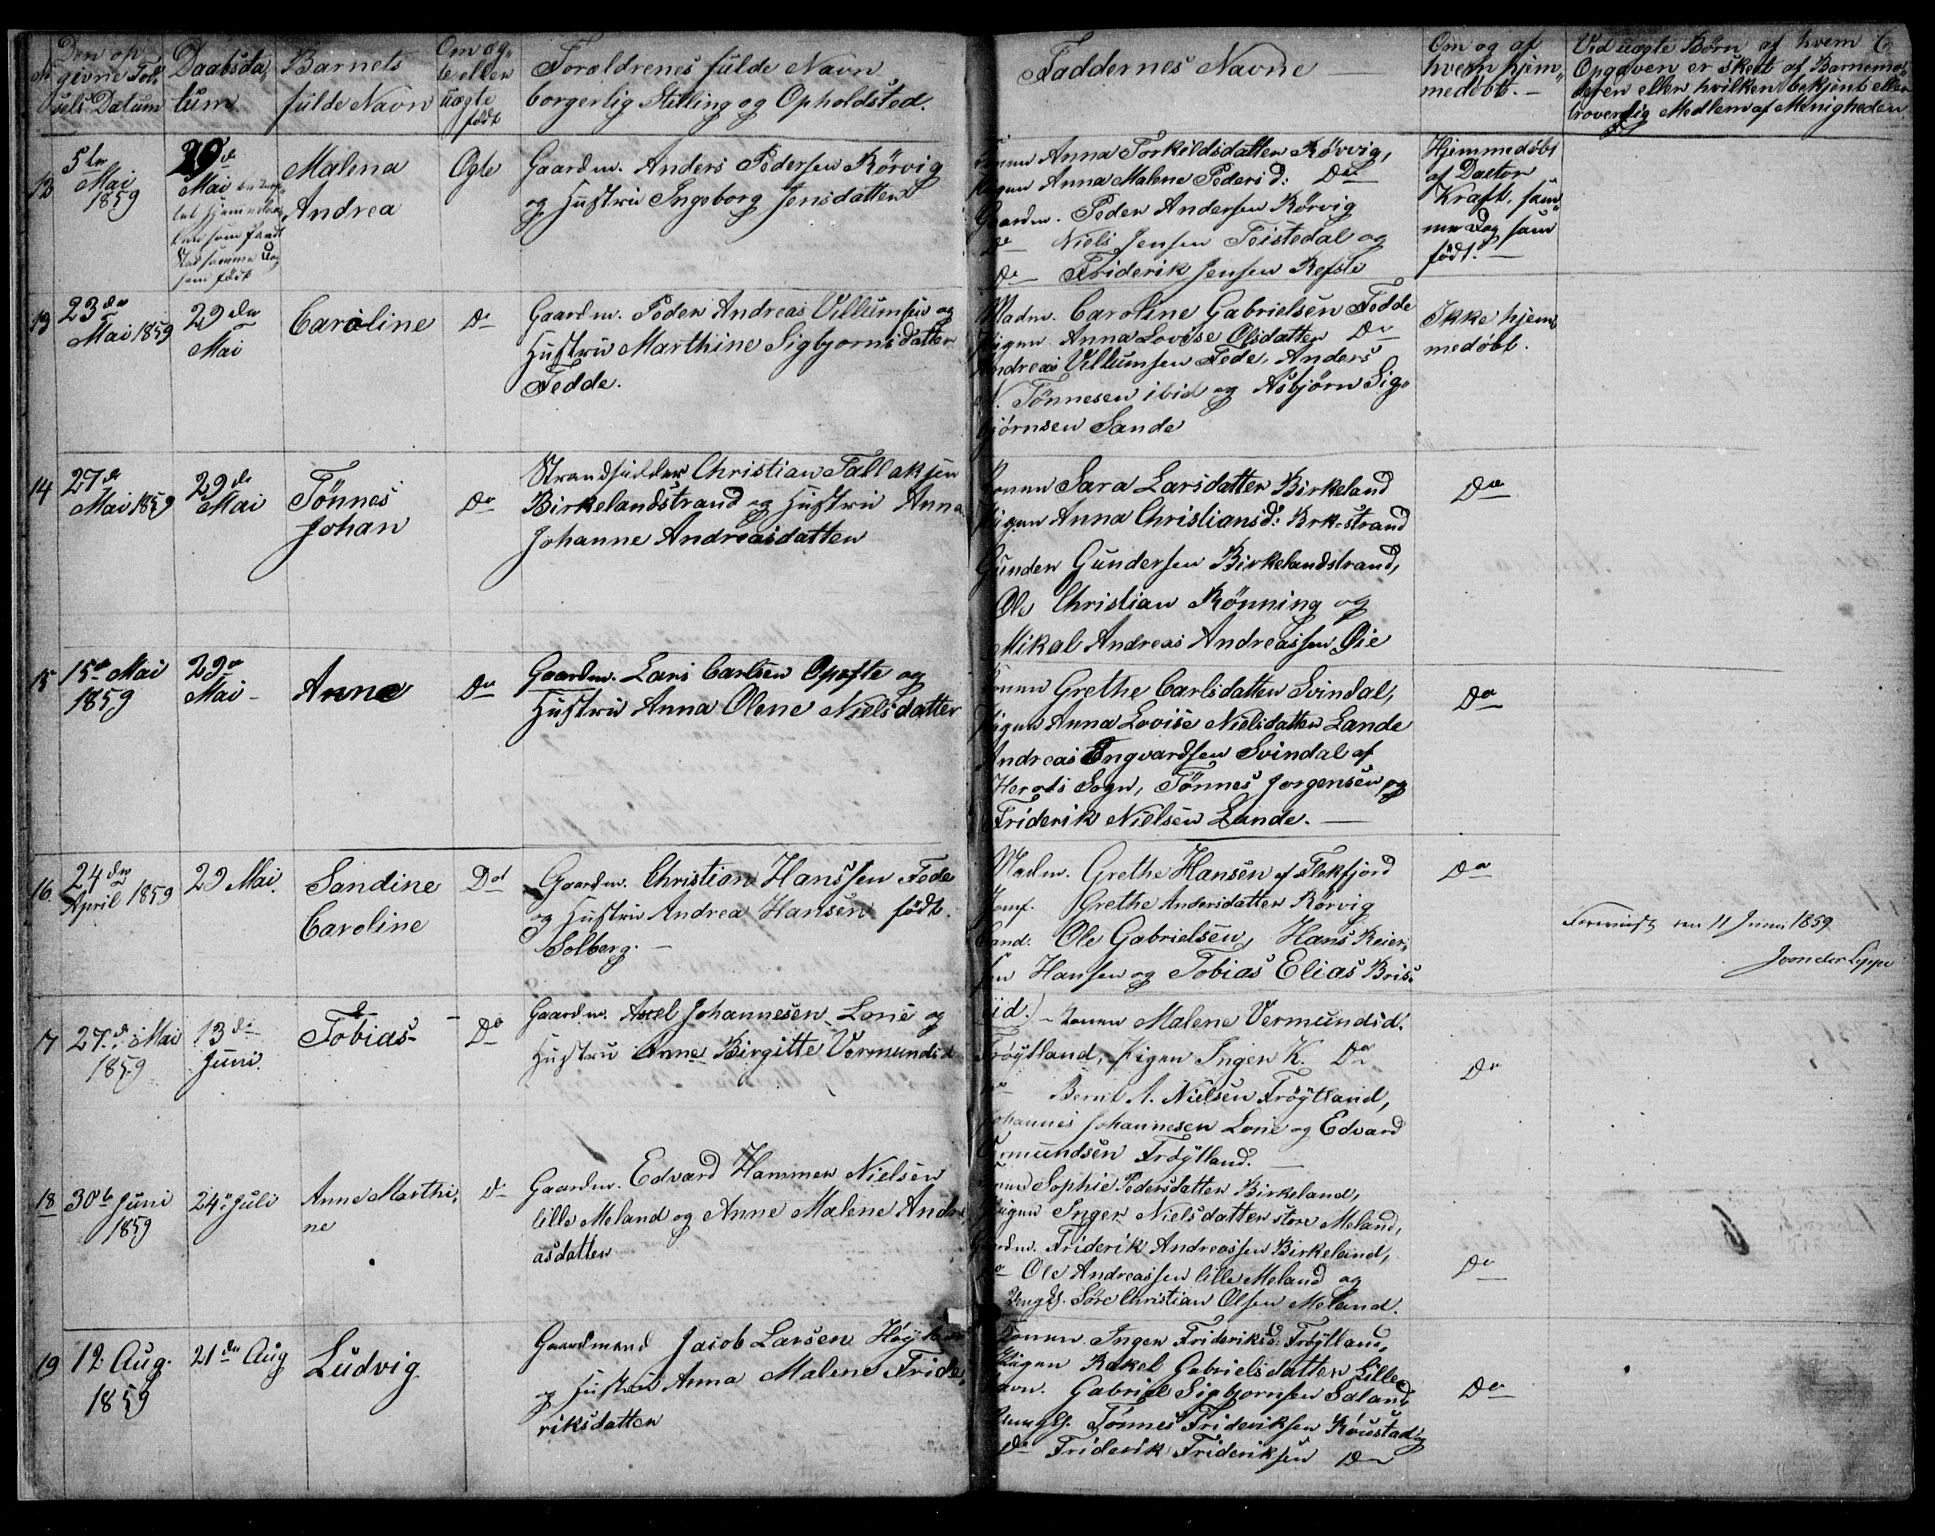 Den op
givne Föd
sels Datum
Daabsda
tum
Barnets
fulde Navn
Om æg
te eller
uægte
født
Forældrenes fulde Navn
borgerlig Stilling og Opholdsted.
Faddernes Navne
Om og af
hvem hjem
medöbt.
Ved uægte Børn af hvem
Opgaven er skeet af Barnemo
deren eller hvilken bekjent eller
troverdig Medlem af Menigheden
6
12
5te
Mai
1859
29de
Mai
som fandt
Sted samme Dag
som født
Malena
Andrea
Ægte
Gaardm. Anders Pedersen Rørvig
og Hustru Ingeborg Jensdatter
Anna Torkildsdatter Rørvig,
Pigen Anna Malene Peders d: Do
Gaardm. Peder Andersen Rørvig
Do Niels Jensen Teistedal og
Do Friderik Jensen Refste
Hjemmedöbt
af Doctor
Kraft, sam
me Dag som
født.
13
23de
Mai 1859
29de
Mai
Caroline
Do
Gaardm. Peder Andreas Villumsen og
Hustru Marthine Sigbjørnsdatter
Fedde.
Madm. Caroline Gabrielsen Fedde
Pigen Anna Lovise Olsdatter Do
Andreas Villumsen Fede, Anders
N. Tönnesen ibid og Asbjørn Sig
bjørnsen Sande
Ikke hjem
medöbt.
14
27de
Mai 1859
29de
Mai
Tönnes
Johan
Do
Strandsidder Christian Tallaksen
Birkelandstrand og Hustru Anna
Johanne Andreasdatter
Konen Sara Larsdatter Birkeland
Pigen Anna Christiansd: Brk.strand
Gunder Gundersen Birkelandstrand,
Ole Christian Rönning og
Mikal Andreas Andreassen Øie
Do
15
15de Mai
1859
29de
Mai
Anne
Do
Gaardm. Lars Carlsen Opofte og
Hustru Anna Olene Nielsdatter
Konen Grethe Carlsdatter Svindal,
Pigen Anna Lovise Nielsdatter Lande
Andreas Engvardsen Svindal af
Herads Sogn, Tönnes Jörgensen og
Friderik Nielsen Lande.
Do
16
24de
April 1859
29 Mai.
Sandine
Caroline
Do
Gaardm. Christian Hanssen Fede
og Hustru Andrea Hansen født
Solberg.
Madm. Grethe Hansen af Flekfjord
Jomf. Grethe Andersdatter Rørvig
Cand. Ole Gabrielsen, Hans Reier
sen Hansen og Tobias Elias Bris
iid.)
Do
11 Juni 1859
17
27de Mai
1859
13de
Juni.
Tobias
Do
Gaardm. Axel Johannesen Lone og
Hustru Anne Birgitte Vermundsd
Konen Malene Vermundsd.
Fröytland, Pigen Inger K. Do
Do Bernt A. Nielsen Fröytland,
Johannes Johannesen Lone og Edvard
Vermundsen Fröytland.
Do
18
30te Juni
1859
24de Juli
Anne Marthi
ne
Do
Gaardm. Edvard Hammer Nielsen
lille Meland og Anne Malene Andre
asdatter
Konen Sophie Pedersdatter Birkeland,
Pigen Inger Nielsdatter store Meland,
Gaardm. Friderik Andreassen Birkeland,
Do Ole Andreassen lille Meland og
Ungk. Söre Christian Olsen Meland.
Do
19
12 Aug.
1859
21de Aug
Ludvig
Gaardmand Jacob Larsen
og Hustru Anna Malene Fride
riksdatter
Konen Inger Frideriksd. Fröytland,
Pigen Rakel Gabrielsdatter Lille
havn. Gabriel Sigbjørnsen Sdland
Ungk. Tönnes Frideriksen Rörestad
Do Friderik Frideriksen Do
Do